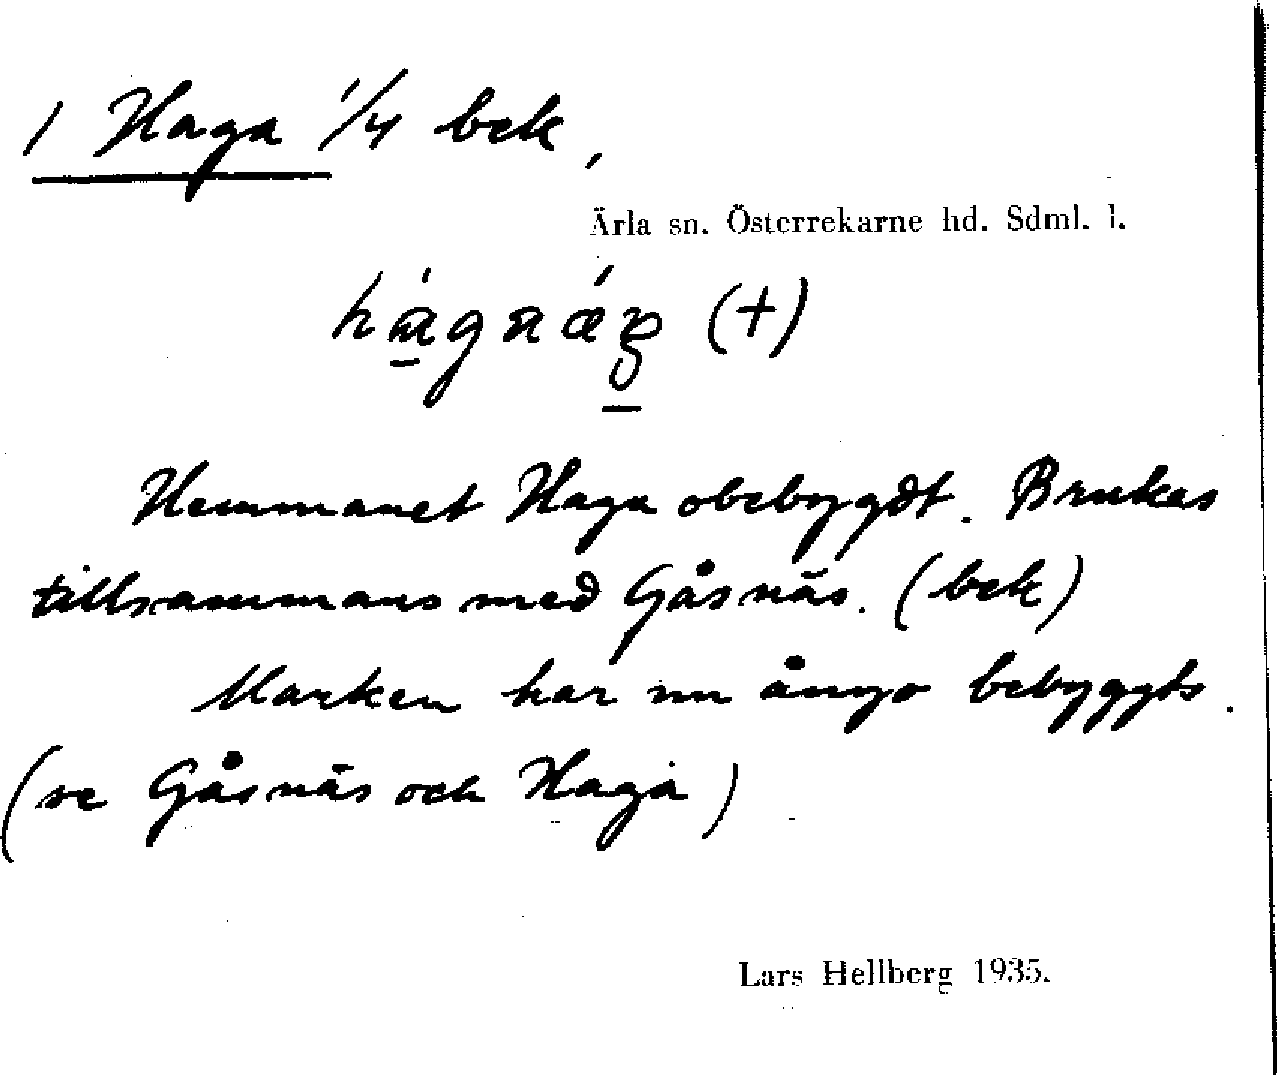 1 Haga 1/4 bek,
Ärla sn. Österrekarne hd. Sdml. l.
(+)
Hemmanet Haga obebygdt. Brukas
tillsammans med Gåsnäs. (bek)
Marken har nu ånyo bebyggts.
(se Gåsnäs och Haga)
Lars Hellberg 1935.